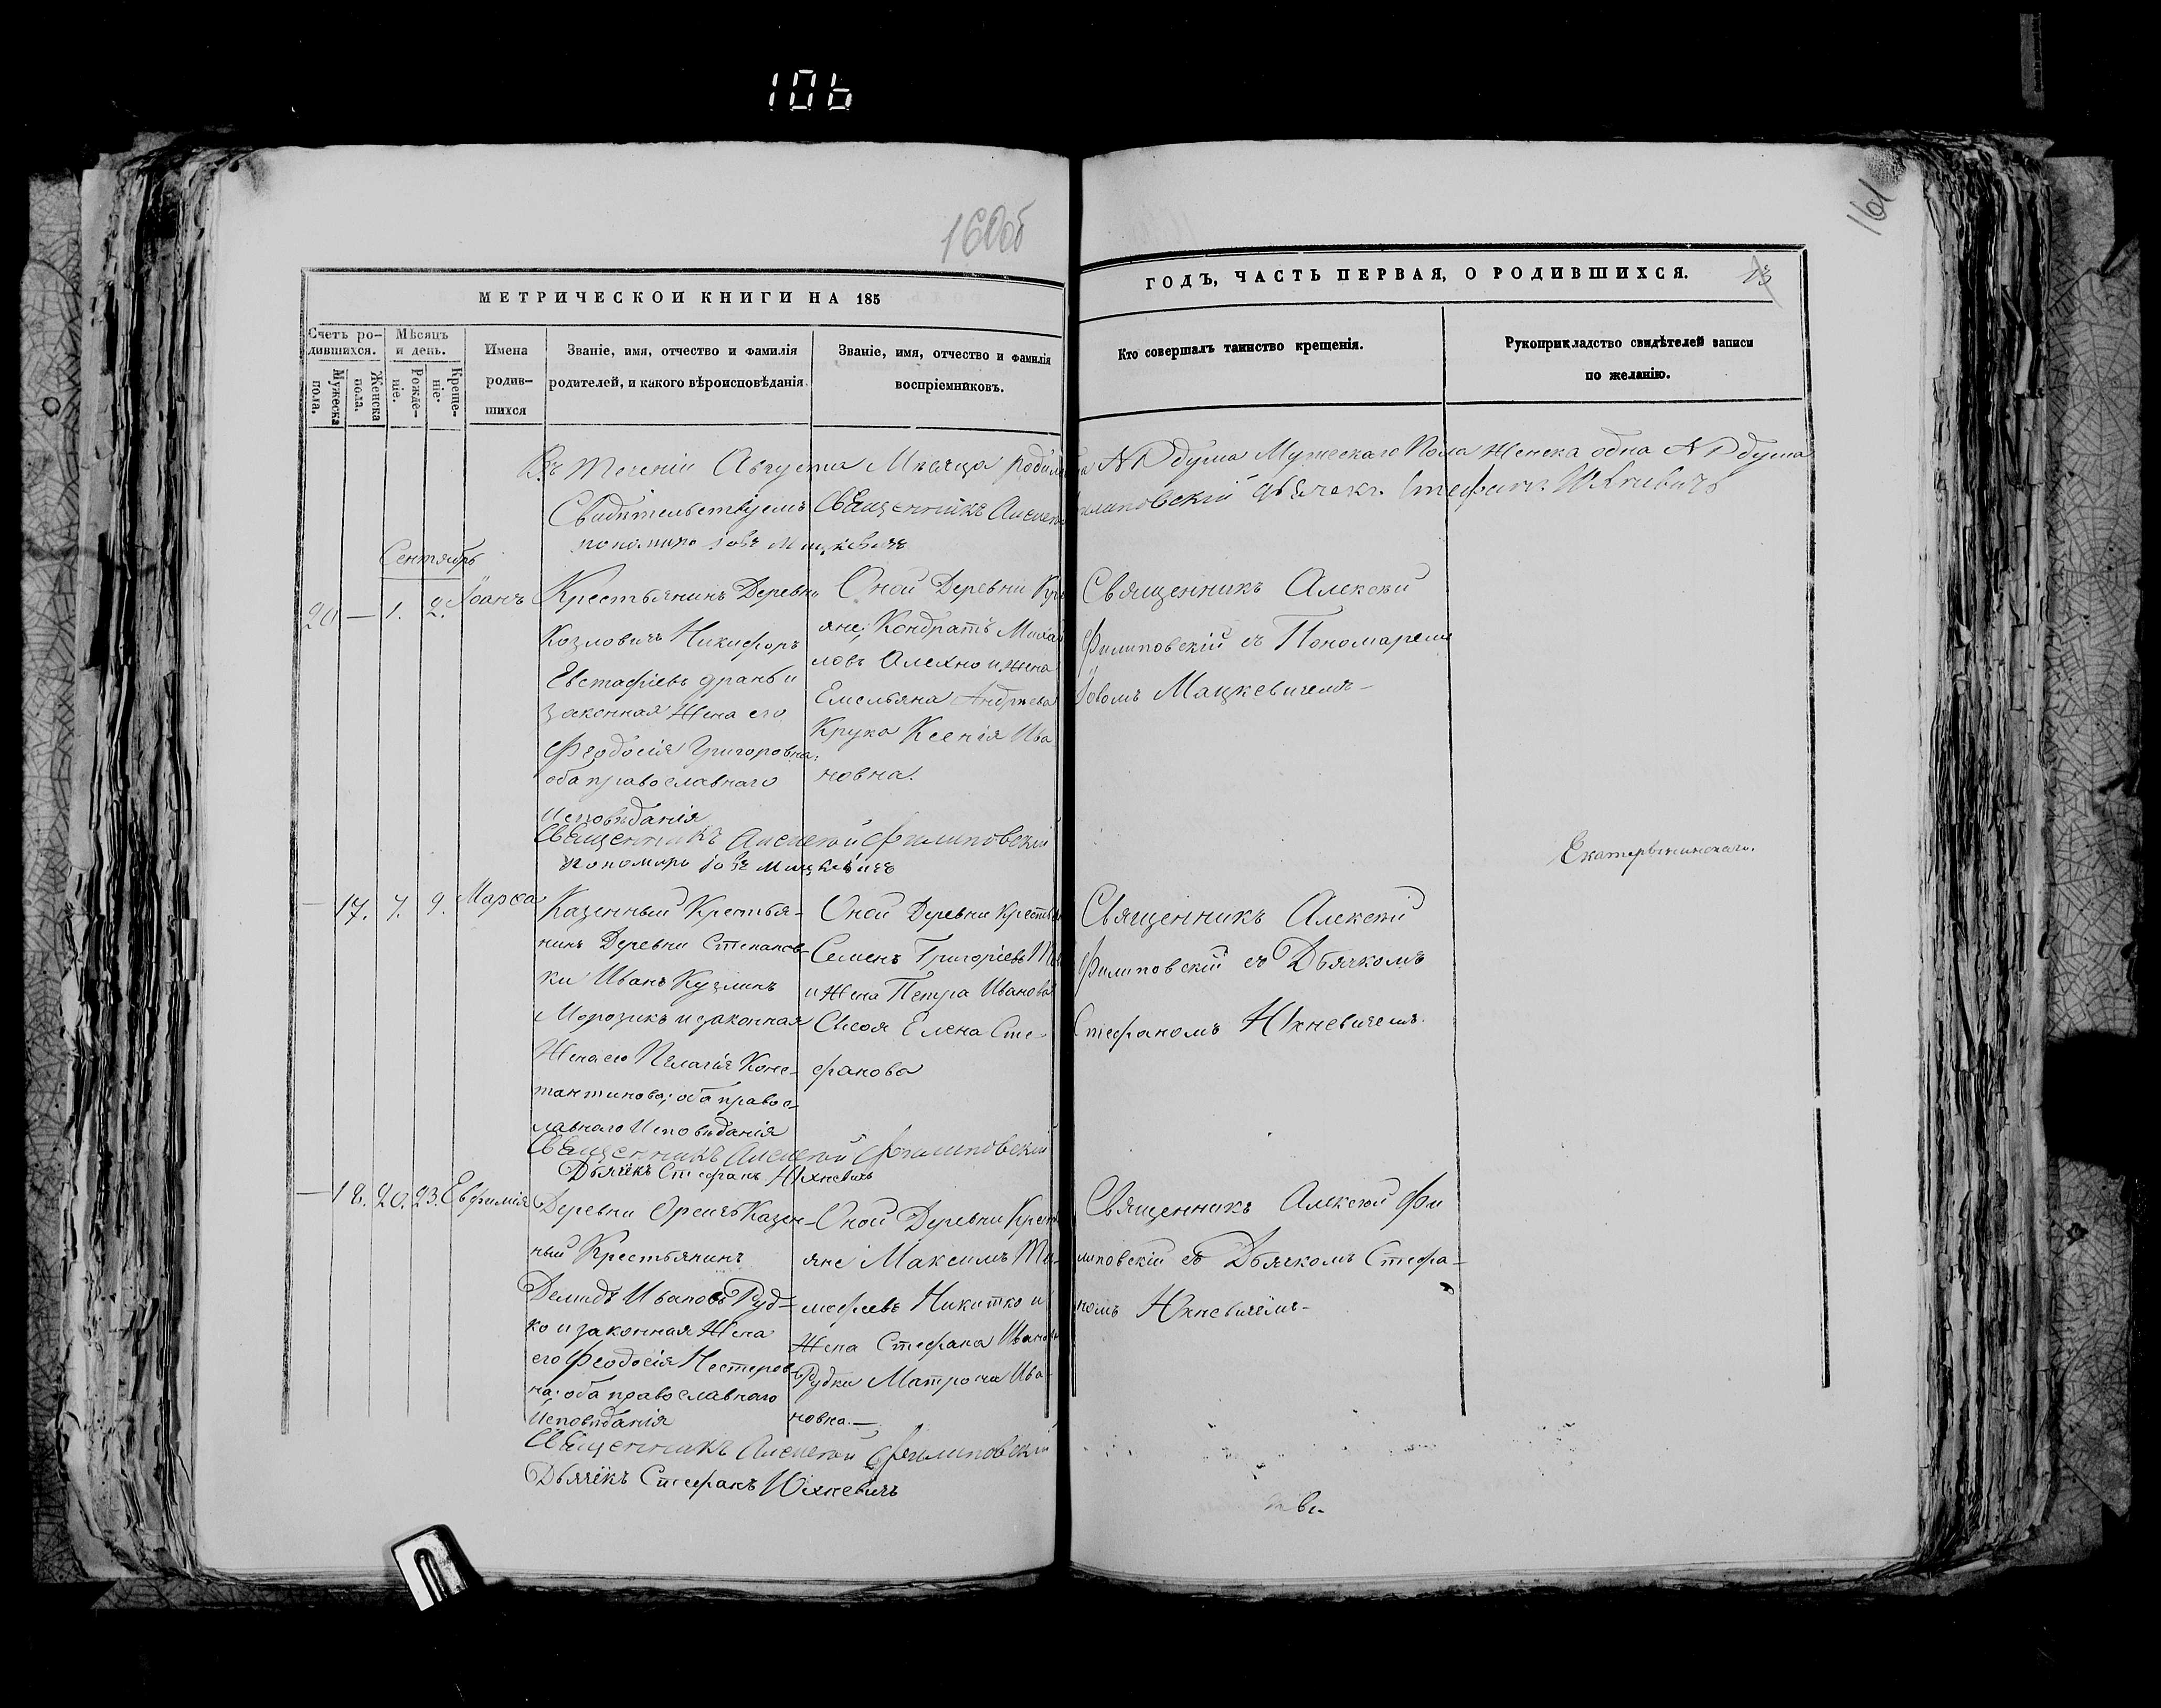 106
160об
161
МЕТРИЧЕСКОЙ КНИГИ НА 185
ГОДЪ, ЧАСТЬ ПЕРВАЯ, О РОДИВШИХСЯ.
13
Счетъ ро-
дившихся.
Мужеска пола.
Женска пола.
Мѣсяцъ
и день.
Рожде-
ніе.
Креще-
ніе.
Имена
родив-
шихся
Званіе, имя, отчество и фамилія
родителей, и какого вѣроисповѣданія.
Званіе, имя, отчество и фамилія
воспріемниковъ.
Кто совершалъ таинство крещенія.
Рукоприкладство свидѣтелей записи
по желанію.
Въ теченіи Августа Мѣсяца родил душа Мужескаго Пола Женска одна душа
Свидѣтельствуемъ Священникъ Алексѣй Филиповскій Дьячекъ Стефанъ Юхневичъ
пономарь Іовъ Мацкевичъ
Сентябрь
20 — 1. 2. Іоанъ
Крестьянинъ Деревни
Козловичъ Никифоръ
Евстафіевъ
законная Жена его
Феодосія Григоровна:
оба православнаго
Исповѣданія
Оной Деревни Кре
яне; Кондратъ Михай
ловъ Алехно и жена
Емельяна Андреева
Крука Ксенія Ива
новна.
Священникъ Алексѣй
Филиповскій съ Пономаремъ
Іовомъ Мацкевичемъ —
Священникъ Алексѣй Филиповскій
пономарь Іовъ Мацкевичъ
Екатерининскаго.
— 17. 7. 9. Марѳа
Казенный Крестья-
нинъ Деревни Степанов-
ки Иванъ Кузминъ
Морозикъ и законная
Жена его Пелагія Конс-
тантинова; оба правос-
лавнаго Исповѣданія
Оной Деревни Крестья
Семенъ Григоріевъ
и Жена Петра Иванова
Елена Сте-
фанова
Священникъ Алексѣй
Филиповскій съ Дьячкомъ
Стефаномъ Юхневичемъ.
Священникъ Алексѣй Филиповскій
Дьячекъ Стефанъ Юхневичъ
— 18. 20. 23. Евфимія
Деревни Казен-
ный Крестьянинъ
Демидъ Ивановъ Руд-
ко и законная Жена
его Феодосія Нестеров-
на; оба православнаго
Исповѣданія
Оной Деревни Крест
яне Максимъ Ти-
мофеевъ Никитко и
Жена Стефана Иванова
Рудки Матрона Ива-
новна. —
Священникъ Алексѣй Фи
липовскій съ Дьячкомъ Стефа-
номъ Юхневичемъ —
Священникъ Алексѣй Филиповскій
Дьячекъ Стефанъ Юхневичъ